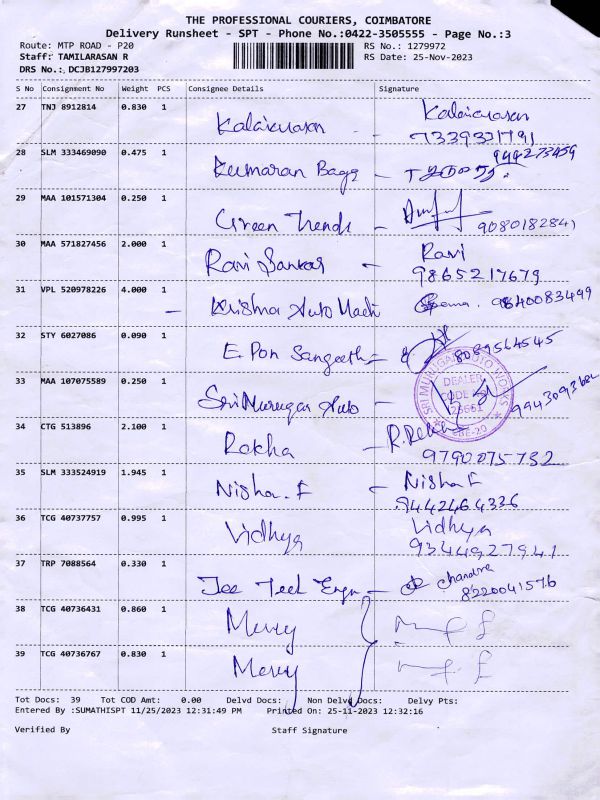 THE PROFESSIONAL COURIERS, COIMBATORE
Delivery Runsheet - SPT - Phone No.:0422-3505555 - Page No.:3
Route: MTP ROAD - P20 RS No.: 1279972
Staff: TAMILARASAN R RS Date: 25-Nov-2023
DRS No.: DCJB127997203
S No Consignment No Weight PCS Consignee Details Signature
27 TNJ 8912814 0.830 1 Kalaiarasan - Kalaiarasan
7339331791
28 SLM 333469090 0.475 1 Kumaran Bags -
29 MAA 101571304 0.250 1 Green Trends - 9080182841
30 MAA 571827456 2.000 1 Ravi Sankar - Ravi
9865217679
31 VPL 520978226 4.000 1 - Krishna Auto Mach 9840083499
32 STY 6027086 0.090 1 E Pon Sangeeth - 8089564545
33 MAA 107075589 0.250 1 Sri Murugan Auto -
SRI MURUGAN AUTO WORKS
DEALER
CODE
CBE-29
34 CTG 513896 2.100 1 Rekha - R.Rekha
9790075732
35 SLM 333524919 1.945 1 Nisha.F - Nisha F
9442464336
36 TCG 40737757 0.995 1 Vidhya Vidhya
9344927941
37 TRP 7088564 0.330 1 Jee Tech Engn - Chandra
8220041576
38 TCG 40736431 0.860 1 Mercy
39 TCG 40736767 0.830 1 Mercy
Tot Docs: 39 Tot COD Amt: 0.00 Delvd Docs: Non Delvd Docs: Delvy Pts:
Entered By :SUMATHISPT 11/25/2023 12:31:49 PM Printed On: 25-11-2023 12:32:16
Verified By Staff Signature